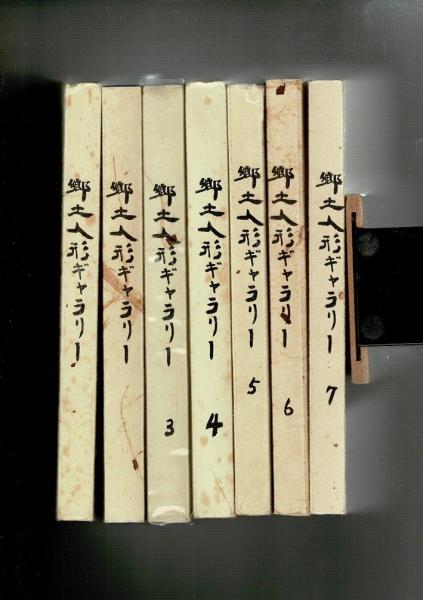 郷土人形ギャラリー
郷土人形ギャラリー
郷土人形ギャラリー 3
郷土人形ギャラリー 4
郷土人形ギャラリー 5
郷土人形ギャラリー 6
郷土人形ギャラリー 7